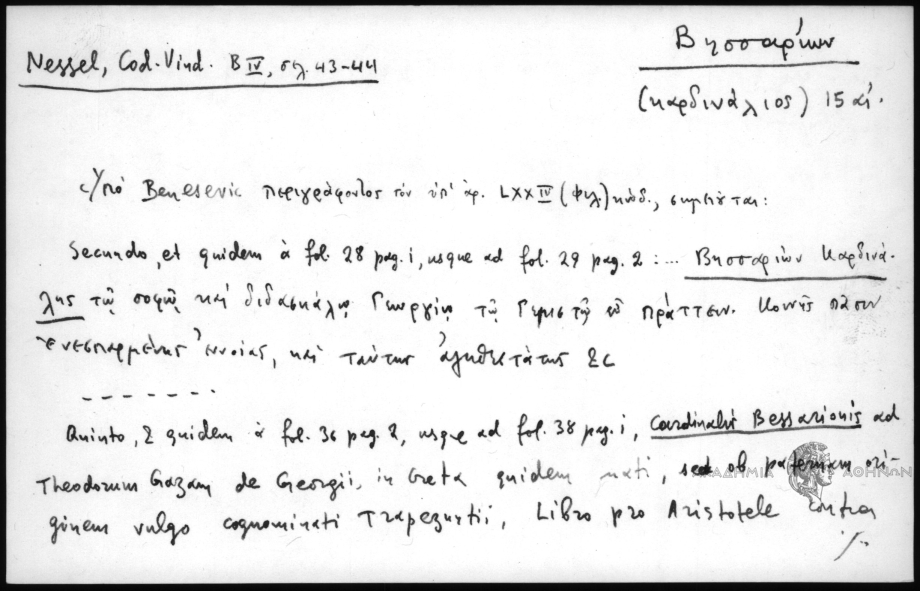 Nessel, Cod. Vind. B IV, σελ. 43-44
Βησσαρίων
(καρδινάλιος) 15 αἰ.
Ὑπό Benesevic περιγράφοντος τόν ὑπ' ἀρ. LXXIV (φιλ.) κώδ., σημειοῦται:
Secundo, et quidem à fol. 28 pag. i, usque ad fol. 29 pag. 2 : ... Βησσαρίων Καρδινά-
λης τῷ σοφῷ καί διδασκάλῳ Γεωργίῳ τῷ Γεμιστῷ εὖ πράττειν. Κοινῆς πᾶσιν
ἐνεσπαρμένης ἐννοίας, καί ταύτης ἀληθεστάτης &c
- - - - - - -
Quinto, & quidem à fol. 36 pag. 2, usque ad fol. 38 pag. i, Cardinalis Bessarionis ad
Theodorum Gazam de Georgii, in Creta quidem nati, sed ob paternam ori-
ginem vulgo cognominati Trapezuntii, Libro pro Aristotele contra
ΑΚΑΔΗΜΙΑ ΑΘΗΝΩΝ